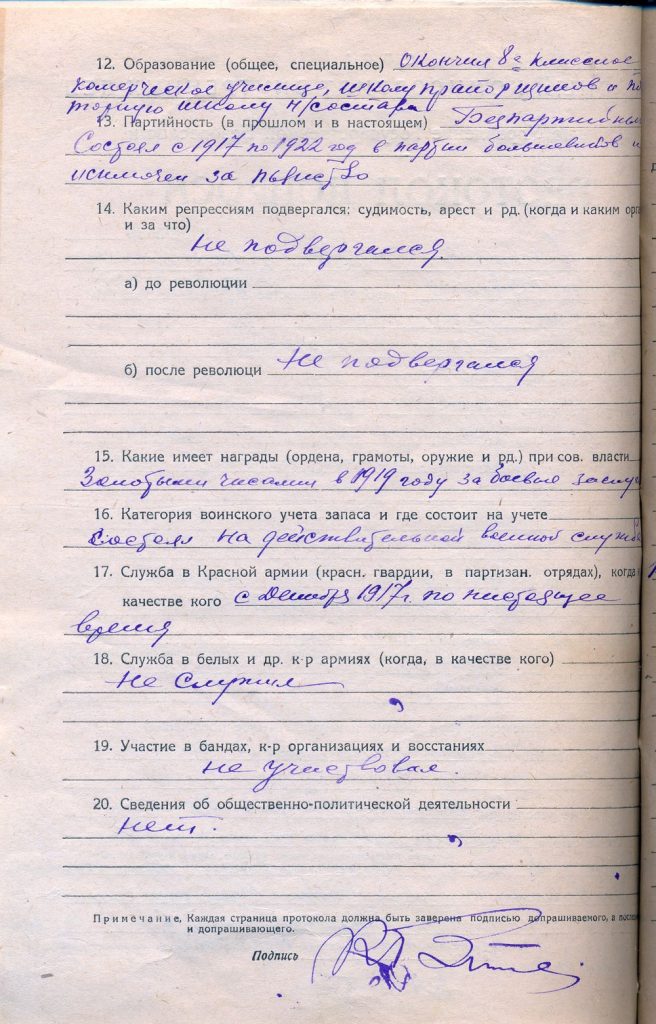 12. Образование (общее, специальное) Окончил 8ᵉ классное
комерческое училище, школу прапорщиков и по
торную школу н/состава
13. Партийность (в прошлом и в настоящем) Безпартийный
Состоял с 1917 по 1922 год в партии большевиков и
исключен за пьянство
14. Каким репрессиям подвергался: судимость, арест и рд. (когда и каким орга
и за что)
Не подвергался.
а) до революции
б) после революци Не подвергался
15. Какие имеет награды (ордена, грамоты, оружие и рд.) при сов. власти
Золотыми часами в 1919 году за боевые заслу
16. Категория воинского учета запаса и где состоит на учете
Состоял на действительной военной служб
17. Служба в Красной армии (красн. гвардии, в партизан. отрядах), когда
качестве кого с Декабря 1917 г. по настоящее
время
18. Служба в белых и др. к-р армиях (когда, в качестве кого)
Не Служил
19. Участие в бандах, к-р организациях и восстаниях
не участвовал.
20. Сведения об общественно-политической деятельности
нет.
Примечание, Каждая страница протокола должна быть заверена подписью допрашиваемого, а после
и допрашивающего.
Подпись